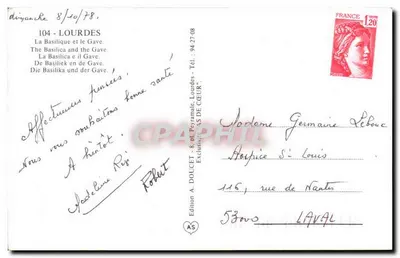 dimanche 8/10/78.
104 - LOURDES
La Basilique et le Gave.
The Basilica and the Gave.
La Basilica e il Gave.
De Basiliek en de Gave.
Die Basilika und der Gave.
Affectueuses pensées!
Nous vous souhaitons bonne santé
A bientôt.
Madeleine
Robert
Edition A. DOUCET - Peyramale, Lourdes - Tél. 94 27 08
Exclusivité "AS DE CŒUR"
AS
FRANCE
1,20
Madame Germaine Lebouc
Hospice St Louis
116, rue de Nantes
53000 LAVAL